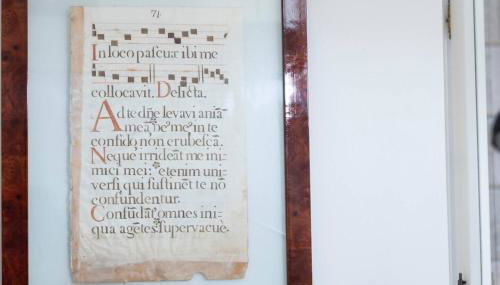 71.
In loco pascuæ ibi me
collocavit. Delicta.
Ad te dñe levavi aniā
meā: Deꝰ meꝰ in te
confido non erubescā.
Neque irrideāt me ini=
mici mei: etenim uni=
versi qui sustinēt te no
confundentur.
Confūdāt omnes ini=
qua agētes supervacuè.